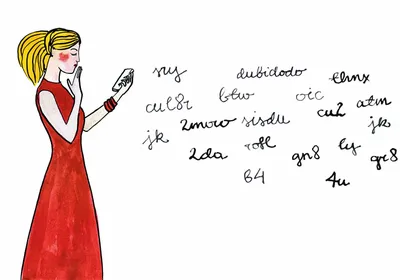 sry dubidodo thnx
cul8r btw oic cu2 atm
jk 2mow sisdu jk
2da rofl gn8 ly gr8
b4 4u